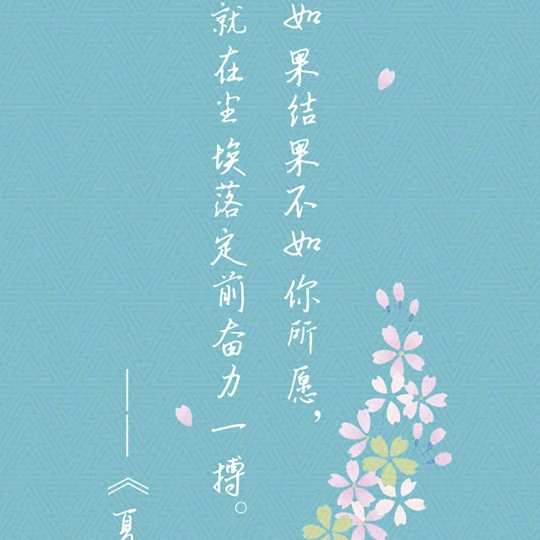 如果结果不如你所愿，
就在尘埃落定前奋力一搏。
——《夏